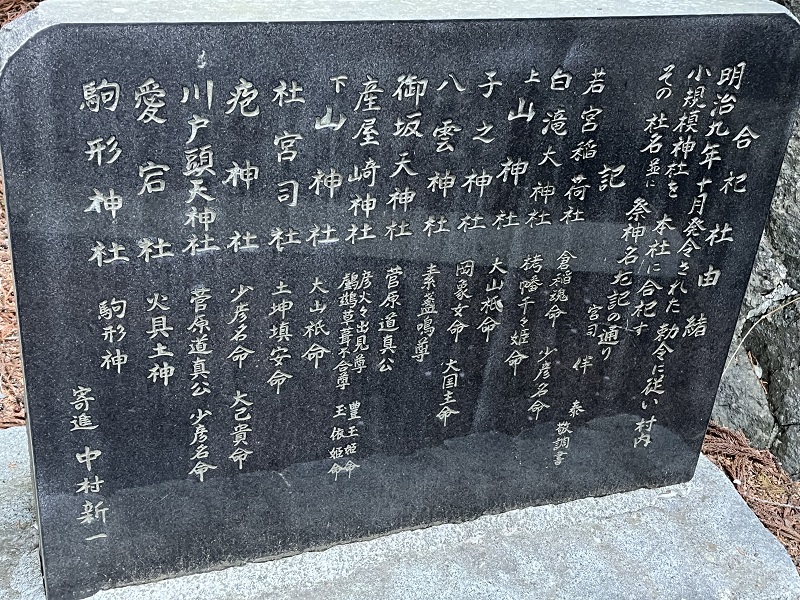 合祀社由緒
明治九年十月発令された勅令に従い村内
小規模神社を本社に合祀す
その社名並に祭神名左記の通り
宮司 伴 泰 敬調書
記
若宮稲荷社 倉稲魂命
白滝大神社 栲幡千々姫命 少彦名命
上山神社 大山祇命
子之神社 罔象女命 大国主命
八雲神社 素盞鳴尊
御坂天神社 菅原道真公
産屋崎神社 彦火々出見尊 豊玉姫命
鸕鶿草葺不合尊 玉依姫命
下山神社 大山祇命
社宮司社 土坤填安命
疱神社 少彦名命 大己貴命
川戸頭天神社 菅原道真公 少彦名命
愛宕社 火具土神
駒形神社 駒形神
寄進 中村新一